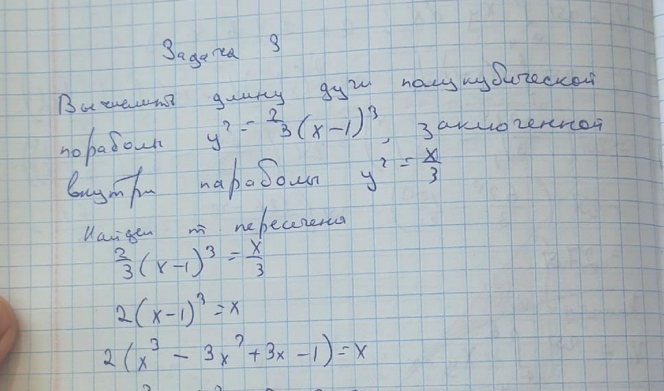 Задача 3
Вычислить длину дуги полукубической
пораболы y² = 2/3 (x-1)³, заключенной
внутри параболы y² = x/3
Найдем т пересечения
2/3 (x-1)³ = x/3
2(x-1)³ = x
2(x³ - 3x² + 3x - 1) = x